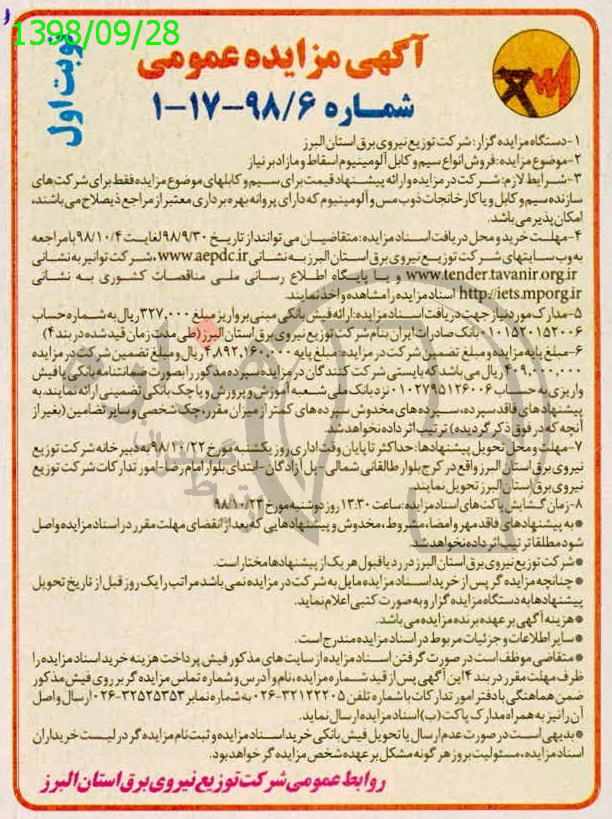 1398/09/28
نوبت اول
آگهی مزایده عمومی
شماره ۹۸/۶-۱۷-۱
۱-دستگاه مزایده گزار: شرکت توزیع نیروی برق استان البرز
۲-موضوع مزایده: فروش انواع سیم و کابل آلومینیوم اسقاط و مازاد بر نیاز
۳-شرایط لازم: شرکت در مزایده و ارائه پیشنهاد قیمت برای سیم و کابلهای موضوع مزایده فقط برای شرکت های
سازنده سیم و کابل و یا کارخانجات ذوب مس و آلومینیوم که دارای پروانه بهره برداری معتبر از مراجع ذیصلاح می باشند،
امکان پذیر می باشد.
۴-مهلت خرید و محل دریافت اسناد مزایده: متقاضیان می توانند از تاریخ ۹۸/۹/۳۰ لغایت ۹۸/۱۰/۴ با مراجعه
به وب سایتهای شرکت توزیع نیروی برق استان البرز به نشانی www.aepdc.ir، شرکت توانیر به نشانی
www.tender.tavanir.org.ir و یا پایگاه اطلاع رسانی ملی مناقصات کشوری به نشانی
http://iets.mporg.ir اسناد مزایده را مشاهده و اخذ نمایند.
۵-مدارک مورد نیاز جهت دریافت اسناد مزایده: ارائه فیش بانکی مبنی بر واریز مبلغ ۳۲۷,۰۰۰ ریال به شماره حساب
۰۱۰۱۵۲۰۱۵۲۰۰۶ بانک صادرات ایران بنام شرکت توزیع نیروی برق استان البرز (طی مدت زمان قید شده در بند ۴)
۶-مبلغ پایه مزایده و مبلغ تضمین شرکت در مزایده: مبلغ پایه ۴,۸۹۲,۱۶۰,۰۰۰ ریال و مبلغ تضمین شرکت در مزایده
۴۰۹,۰۰۰,۰۰۰ ریال می باشد که بایستی شرکت کنندگان در مزایده سپرده مذکور را بصورت ضمانتنامه بانکی یا فیش
واریزی به حساب ۰۱۰۲۷۹۵۱۲۶۰۰۶ نزد بانک ملی شعبه آموزش و پرورش و یا چک بانکی تضمینی ارائه نمایند. به
پیشنهادهای فاقد سپرده، سپرده های مخدوش سپرده های کمتر از میزان مقرر، چک شخصی و سایر تضامین (بغیر از
آنچه که در فوق ذکر گردیده) ترتیب اثر داده نخواهد شد.
۷-مهلت و محل تحویل پیشنهادها: حداکثر تا پایان وقت اداری روز یکشنبه مورخ ۹۸/۱۰/۲۲ به دبیرخانه شرکت توزیع
نیروی برق استان البرز واقع در کرج بلوار طالقانی شمالی- پل آزادگان -ابتدای بلوار امام رضا- امور تدارکات شرکت توزیع
نیروی برق استان البرز تحویل نمایند.
۸-زمان گشایش پاکت های اسناد مزایده: ساعت ۱۳:۳۰ روز دوشنبه مورخ ۹۸/۱۰/۲۳
● به پیشنهادهای فاقد مهر و امضا، مشروط، مخدوش و پیشنهادهایی که بعد از انقضای مهلت مقرر در اسناد مزایده واصل
شود مطلقا ترتیب اثر داده نخواهد شد
● شرکت توزیع نیروی برق استان البرز در رد یا قبول هر یک از پیشنهادها مختار است.
● چنانچه مزایده گر پس از خرید اسناد مزایده مایل به شرکت در مزایده نمی باشد مراتب را یک روز قبل از تاریخ تحویل
پیشنهادها به دستگاه مزایده گزار و به صورت کتبی اعلام نماید.
● هزینه آگهی بر عهده برنده مزایده می باشد.
● سایر اطلاعات و جزئیات مربوط در اسناد مزایده مندرج است.
● متقاضی موظف است در صورت گرفتن اسناد مزایده از سایت های مذکور فیش پرداخت هزینه خرید اسناد مزایده را
ظرف مهلت مقرر در بند ۴ این آگهی پس از قید شماره مزایده، نام و آدرس و شماره تماس مزایده گر بر روی فیش مذکور
ضمن هماهنگی با دفتر امور تدارکات با شماره تلفن ۳۲۱۲۲۲۰۵-۰۲۶ به شماره نمابر ۳۲۵۲۵۳۵۳-۰۲۶ ارسال و اصل
آن را نیز به همراه مدارک پاکت (ب) اسناد مزایده ارسال نماید.
● بدیهی است در صورت عدم ارسال یا تحویل فیش بانکی خرید اسناد مزایده و ثبت نام مزایده گر در لیست خریداران
اسناد مزایده، مسئولیت بروز هر گونه مشکل بر عهده شخص مزایده گر خواهد بود.
روابط عمومی شرکت توزیع نیروی برق استان البرز